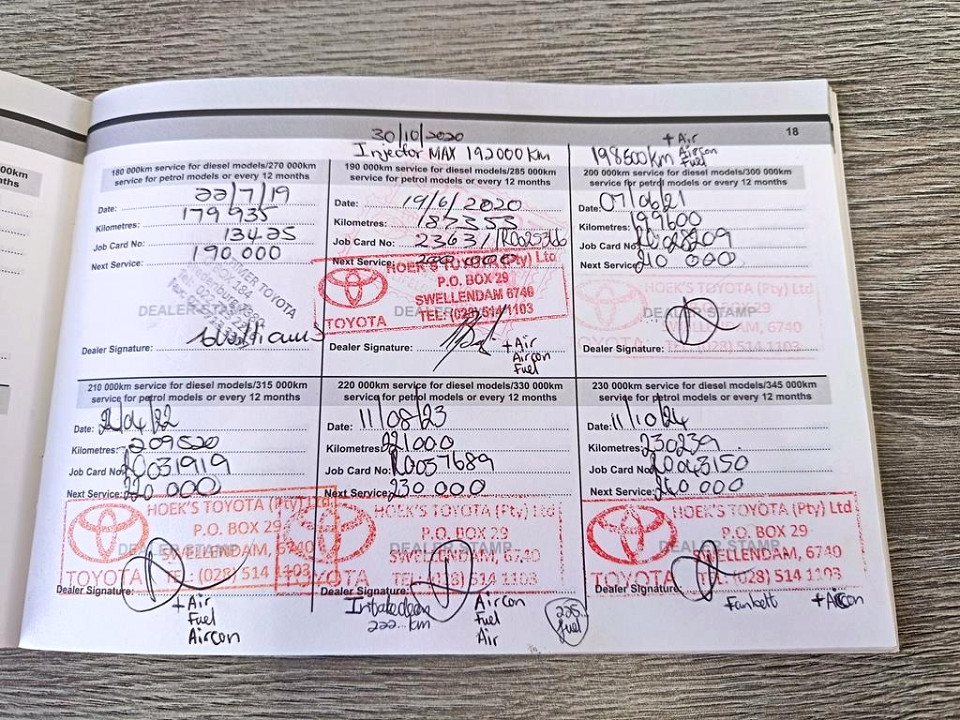 18
30/10/2020
Injector MAX 192000 Km
+ Air
198600km Aircon
Fuel
180 000km service for diesel models/270 000km
service for petrol models or every 12 months
Date: 22/7/19
Kilometres: 179 935
Job Card No: 13425
Next Service: 190.000
DEALER STAMP
Dealer Signature:
190 000km service for diesel models/285 000km
service for petrol models or every 12 months
Date: 19/6/2020
Kilometres: 187353
Job Card No: 23631
Next Service:
HOEK'S TOYOTA (Pty) Ltd
P.O. BOX 29
SWELLENDAM 6740
TEL: (028) 514 1103
TOYOTA
Dealer Signature:
+ Air
Aircon
Fuel
200 000km service for diesel models/300 000km
service for petrol models or every 12 months
Date: 07/06/21
Kilometres: 199600
Job Card No: R0028209
Next Service: 210 000
HOEK'S TOYOTA (Pty) Ltd
P.O. BOX 29
DEALER STAMP
SWELLENDAM, 6740
TOYOTA TEL: (028) 514 1103
Dealer Signature:
210 000km service for diesel models/315 000km
service for petrol models or every 12 months
Date: /04/22
Kilometres: 209520
Job Card No: R0031919
Next Service: 220 000
HOEK'S TOYOTA (Pty) Ltd
P.O. BOX 29
DEALER STAMP
SWELLENDAM, 6740
TOYOTA TEL: (028) 514 1103
Dealer Signature:
+ Air
Fuel
Aircon
220 000km service for diesel models/330 000km
service for petrol models or every 12 months
Date: 11/08/23
Kilometres: 221000
Job Card No: R0037689
Next Service: 230 000
HOEK'S TOYOTA (Pty) Ltd
P.O. BOX 29
DEALER STAMP
SWELLENDAM, 6740
TOYOTA TEL: (028) 514 1103
Dealer Signature:
Intake clean
222...km
Aircon
Fuel
Air
225
fuel
230 000km service for diesel models/345 000km
service for petrol models or every 12 months
Date: 11/10/24
Kilometres: 230239
Job Card No: R0043150
Next Service: 240 000
HOEK'S TOYOTA (Pty) Ltd
P.O. BOX 29
DEALER STAMP
SWELLENDAM, 6740
TOYOTA TEL: (028) 514 1103
Dealer Signature:
Fanbelt + Aircon